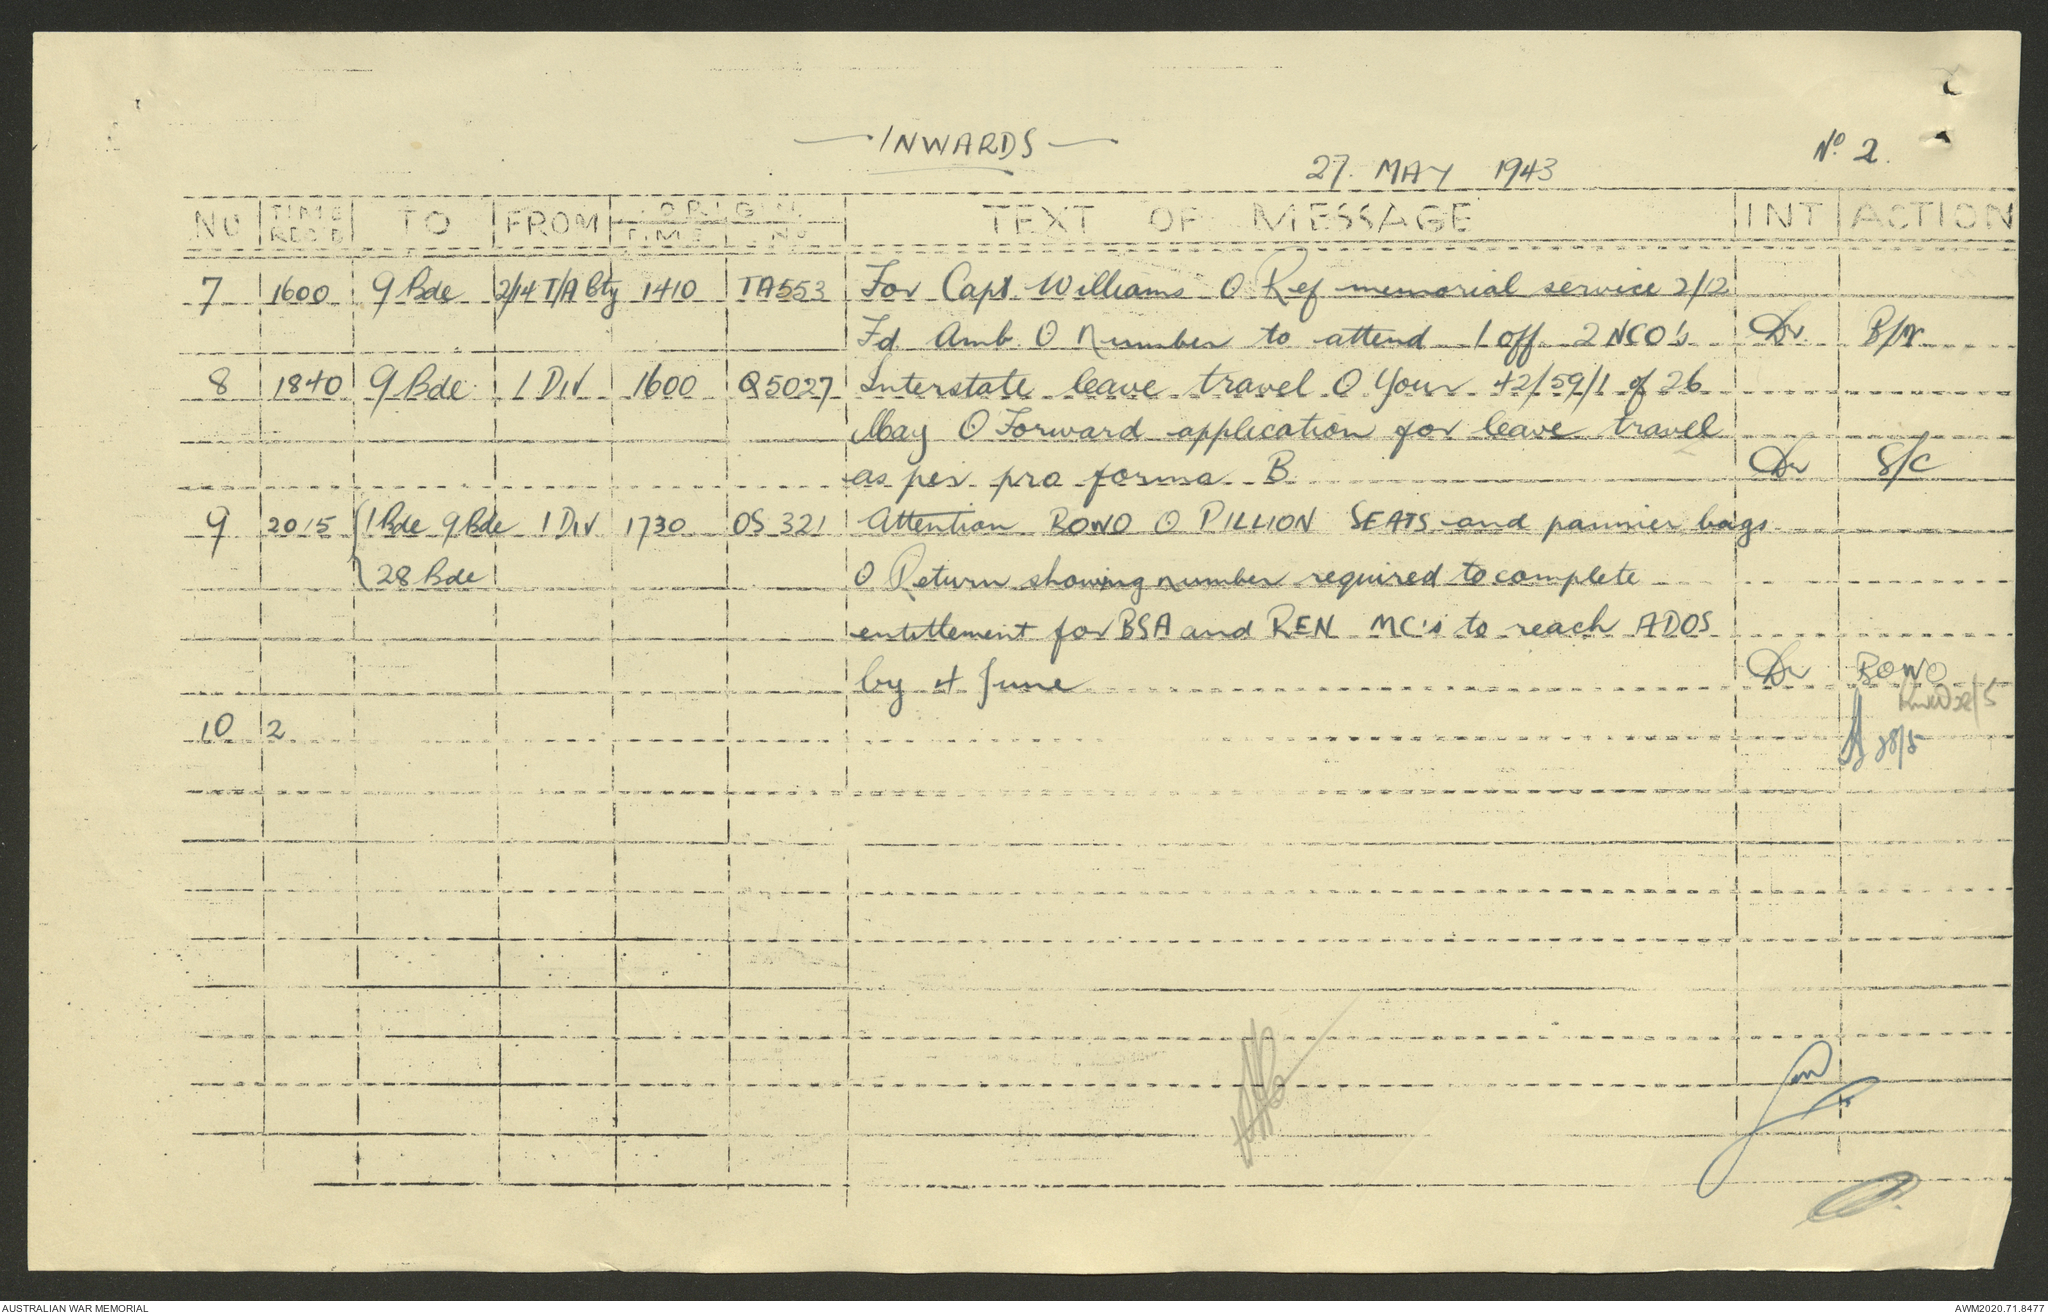 — INWARDS —
Nº 2.
27. MAY 1943
NU TIME REC'D TO FROM ORIGIN TIME NO TEXT OF MESSAGE INT ACTION
7 1600 9 Bde 2/14 T/A Bty 1410 TA553 For Capt Williams O Ref memorial service 2/12
Fd Amb. O Number to attend 1 off 2 NCO's Dr
8 1840 9 Bde 1 DIV 1600 Q5027 Interstate leave travel O Your 42/59/1 of 26
May O Forward application for leave travel
as per pro forma B. Dr S/C
9 2015 1 Bde 9 Bde 1 DIV 1730 OS 321 Attention BOWO O PILLION SEATS and pannier bags
28 Bde O Return showing number required to complete
entitlement for BSA and REN MC's to reach ADOS
by 4 June Dr BOWO
10 2
28/5
AUSTRALIAN WAR MEMORIAL
AWM2020.71.8477